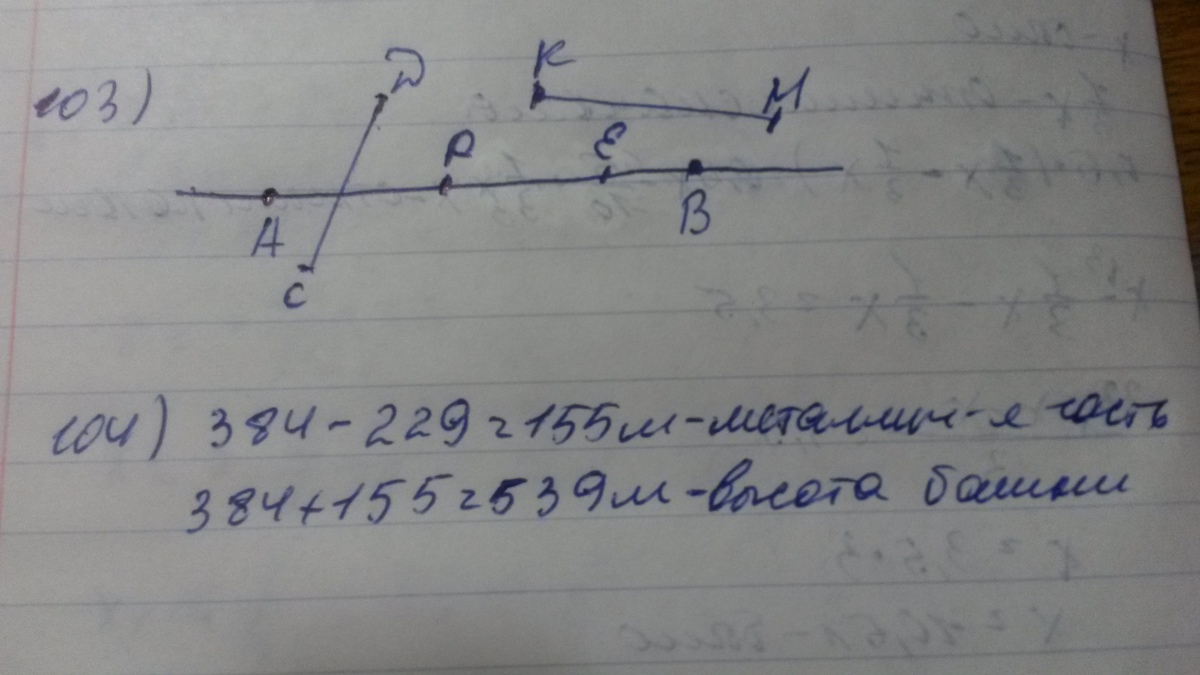 103)
D
K
M
P
E
A
B
C
104) 384-229=155м-металлич-я часть
384+155=539м-высота башни